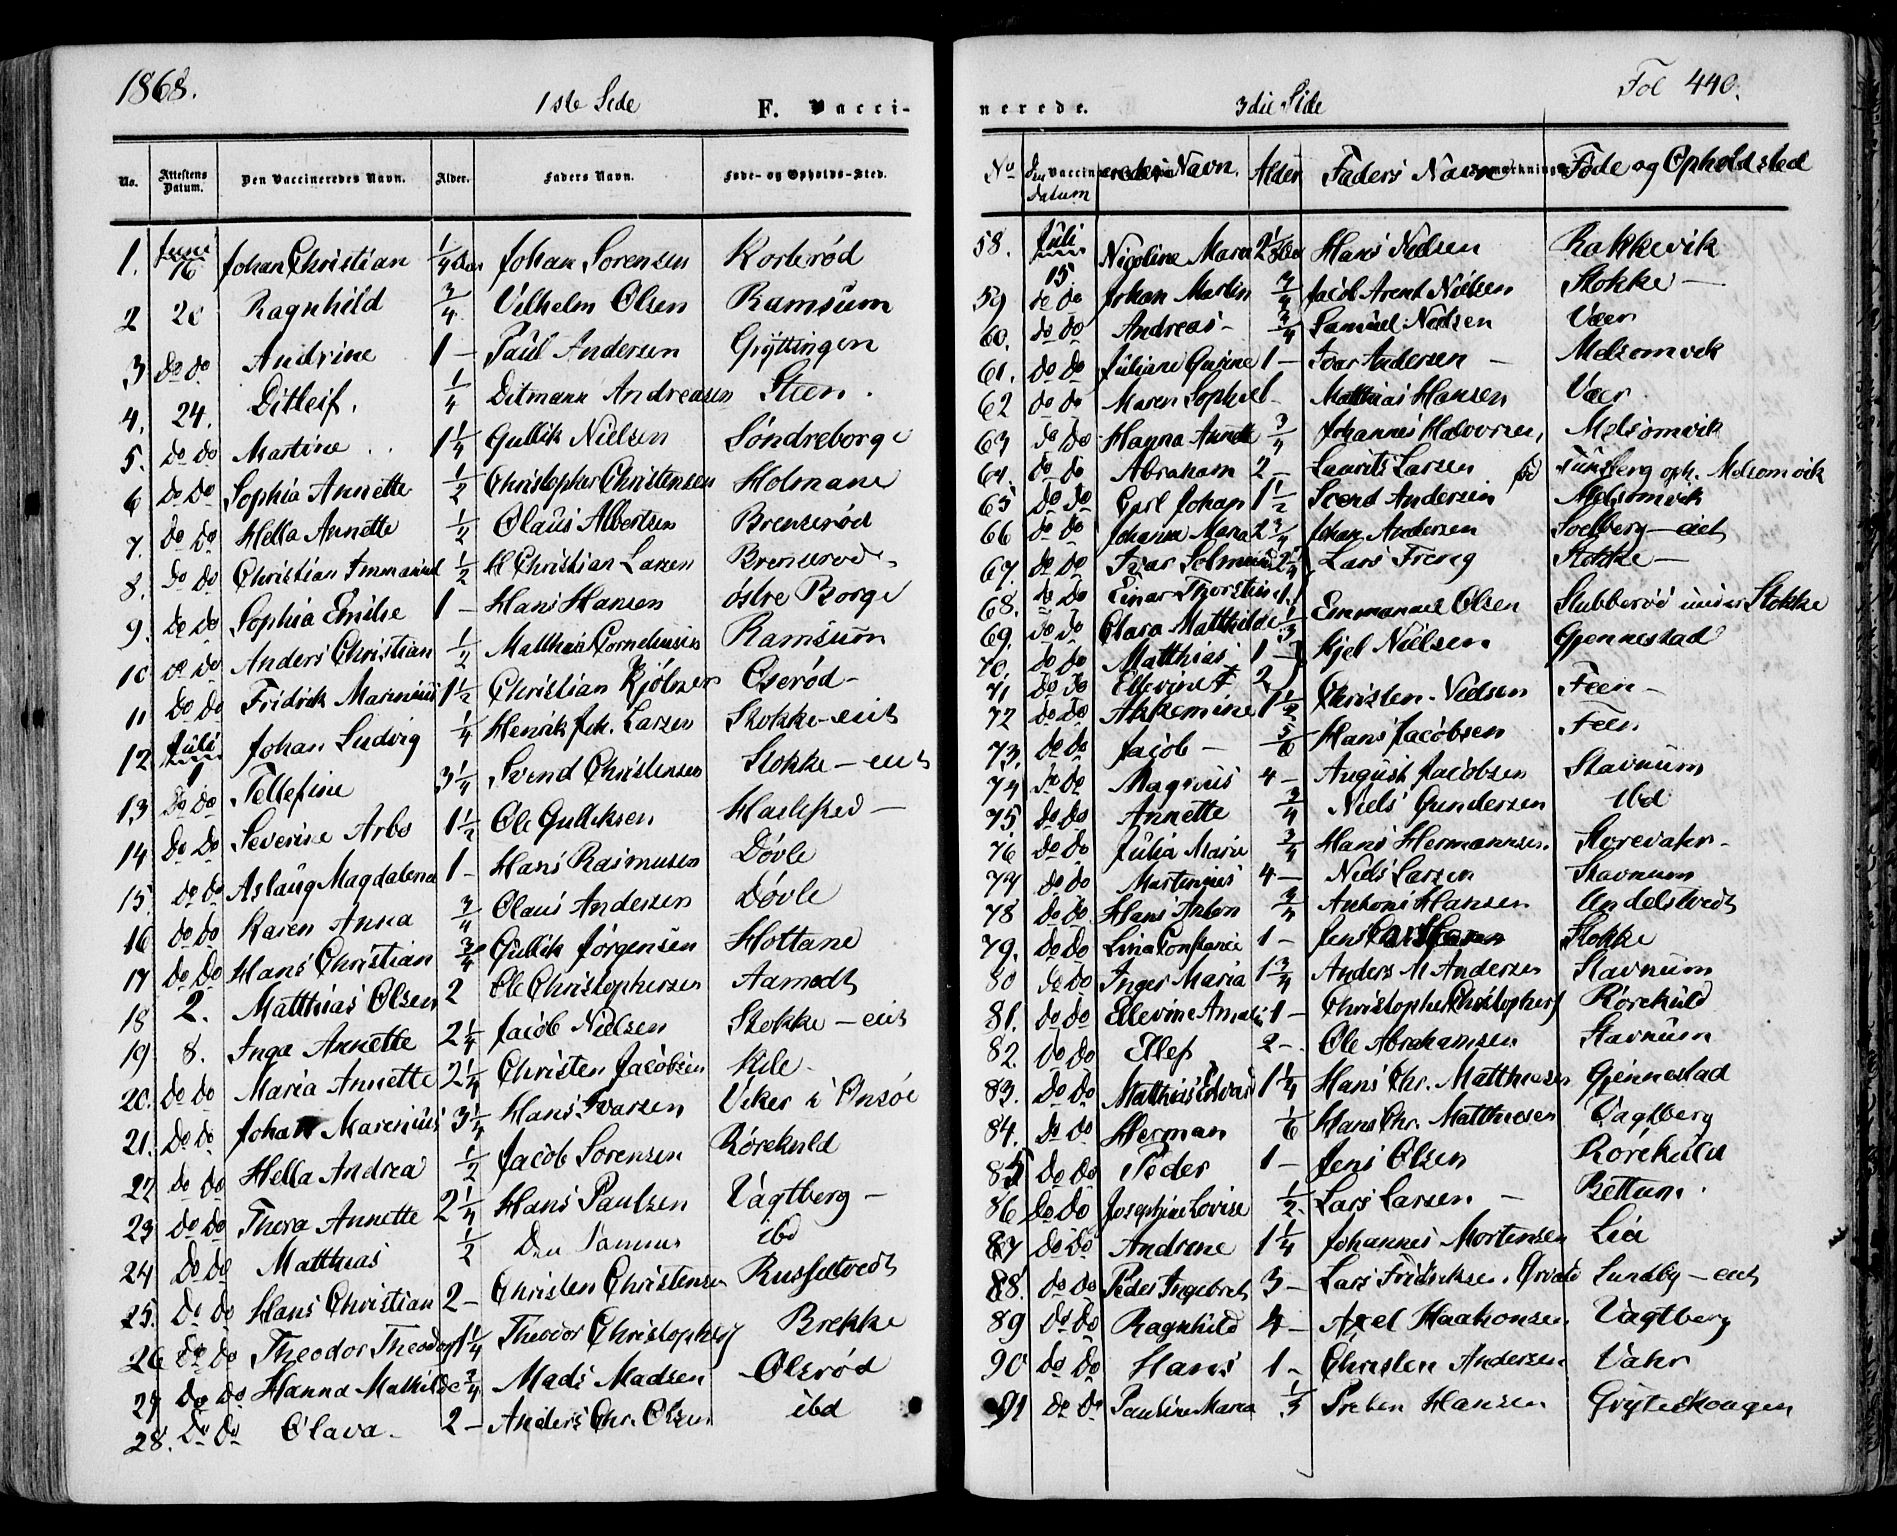 1868.
1ste Side
F. Vacci-
No. Attestens Datum. Den Vaccineredes Navn. Alder. Faders Navn. Føde- og Opholds-Sted.
1. Juni 16 Johan Christian 1/4 Johan Sorensen Korterød
2 20 Ragnhild 3/4 Vilhelm Olsen Ramsum
3 do do Andrine 1 - Paul Andersen Gryttingen
4. 24. Ditleif. 1/4 Ditmann Andreasen Steen.
5. do do Martine 1 1/4 Gullik Nielsen Søndreborge
6 do do Sophia Annette 1/2 Christopher Christensen Holmane
7. do do Hella Annette 1/2 Olaus Albertsen Brenserød
8. do do Christian Immanuel 1/2 Christian Larsen Brenserød
9. do do Sophia Emilie 1 - Hans Hansen østre Borge
10 do do Anders Christian 1/2 Matthias Corneliusen Ramsum
11 do do Fridrik Marinius 1 1/2 Christian Kjølner Oserød -
12 Juli 1 Johan Ludvig 1/4 Henrik Joh. Larsen Stokke - eiet
13. do do Tellefine 3 1/4 Svend Christensen Stokke - eiet
14 do do Severine Arbo 1 1/2 Ole Gulliksen
15. do do Aslaug Magdalena 1 - Hans Rasmusen Døvle
16 do do Karen Anna 3/4 Olaus Andersen Døvle
17 do do Hans Christian 3/4 Gullik Jørgensen Hottane
18 2. Matthias Olsen 2 Ole Christophersen Aamodt
19 8. Inga Annette 2 1/4 Jacob Nielsen Stokke - eiet
20. do do Maria Annette 2 1/4 Christen Jacobsen Kile -
21. do do Johan Marenius 3 1/4 Hans Ivarsen Viker i Onsøe
22 do do Hella Andrea 1/2 Jacob Sorensen Rørekuld
23 do do Thora Annette 2 1/4 Hans Paulsen Vagtberg -
24 do do Matthias 1/2 Den Samme ibd
25. do do Hans Christian 2 - Christen Christensen Russeltvedt
26 do do Theodor Theodor 1 1/4 Theodor Christophers Brekke
27 do do Hanna Mathilde 3/4 Mads Madsen Olsrød
28. do do Olava - 2 - Anders Chr. Olsen ibd
nerede.
3die Side
Fol 440.
No Den Vaccineredes Navn. Datum Alder Faders Navn Anmærkninger. Føde og Opholdsted
58. Juli 15 Nicoline Maria 2 1/2 Hans Nielsen Rakkevik
59 do do Johan Martin 3/4 Jacob Arent Nielsen Stokke -
60. do do Andreas - 3/4 Samuel Nielsen Vær
61. do do Juliane Gusine 1 - Ivar Andersen - Melsomvik
62 do do Maren Sophie 1 - Matthias Hansen Vær
63 do do Hanna Annette 3/4 Johannes Halvorsen, Melsomvik
64. do do Abraham 2 - Laurits Larsen fød Tunsberg oph. Melsomvik
65 do do Carl Johan 1 1/2 Svend Andersen Melsomvik
66 do do Johanna Maria 2 3/4 Johan Andersen Soelberg - eiet
67. do do Ivar 2 1/4 Lars Stokke -
68. do do Einar Thorstin
69. do do Clara Matthilde 1/3 Emmanuel Olsen Stubberød under Stokke
70. do do Matthias 1 - Kjel Nielsen Gjennestad
71. do do Ellevine 2
72 do do Akkemine 1 1/2 Christen Nielsen Feen -
73. do do Jacob - 5/6 Hans Jacobsen Feen
74 do do Magnus 4 - August Jacobsen Stavnum
75 do do Annette 3/4 Niels Gundersen ibd
76 do do Julia Marie 3/4 Hans Hermannsen. Storevahr -
77 do do Martinius 4 - Niels Larsen Stavnum
78 do do Hans Anton 3/4 Antoni Hansen Undelstvedt
79. do do Lina Constance 1 - Jens Stokke
80 do do Inger Maria 1 3/4 Anders M Andersen Stavnum
81. do do Ellevine Amalie 1 - Christopher Christophers Rørekuld
82. do do Ellef 2 - Ole Abrahamsen Stavnum
83. do do Matthias Edvard 1 1/4 Hans Chr. Matthiesen Gjennestad
84. do do Herman 1/6 Hans Chr. Matthiesen Vagtberg
85 do do Peder 1 - Jens Olsen Rørekuld
86 do do Josephine Lovise 1/2 Lars Larsen - Bettum.
87 do do Andrine 1 1/4 Johannes Mortensen Lia
88. do do Peder Ingebret 3 - Lars Fridriksen Lundby - eiet
89 do do Ragnhild 4 - Axel Haakonsen Vagtberg
90 do do Hans 1 - Christen Andersen Vahr
91 do do Pauline Maria 1/3 Preben Hansen Gryteskougen